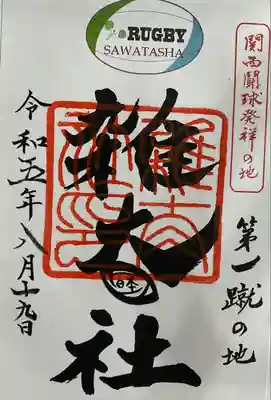 RUGBY
SAWATASHA
関西闘球発祥の地
第一蹴の地
雑太社
令和五年八月十九日